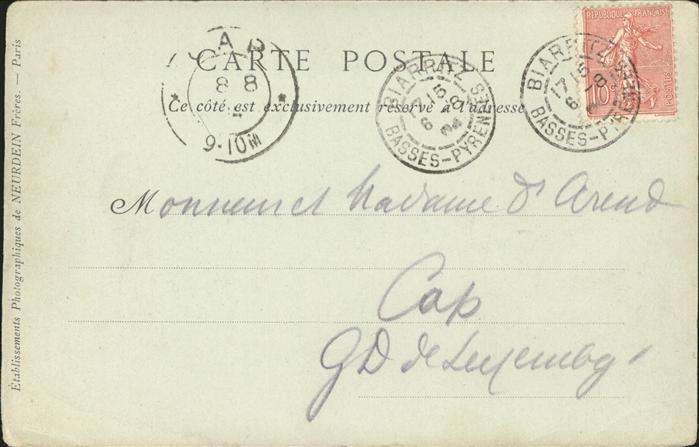 CARTE POSTALE
Ce côté est exclusivement réservé à l'adresse
CAP
8 8
9-10M
BIARRITZ
17 15
6 -8
BASSES-PYRENEES
BIARRITZ
17 15
6 -8
BASSES-PYRENEES
REPUBLIQUE FRANÇAISE
10
POSTES
Monsieur et Madame d'Arend
Cap
GD de Luxembg
Etablissements Photographiques de NEURDEIN Frères. — Paris